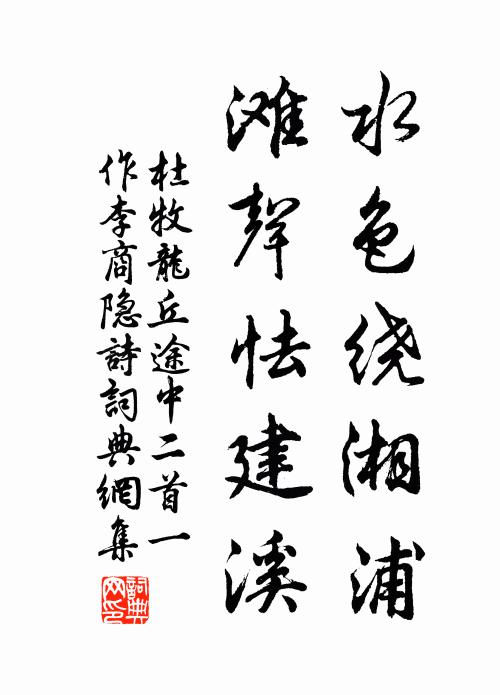 水色绕湘浦
滩聲怯建溪
杜牧龍丘途中二首一
作李商隐詩詞典網集
詞典網印